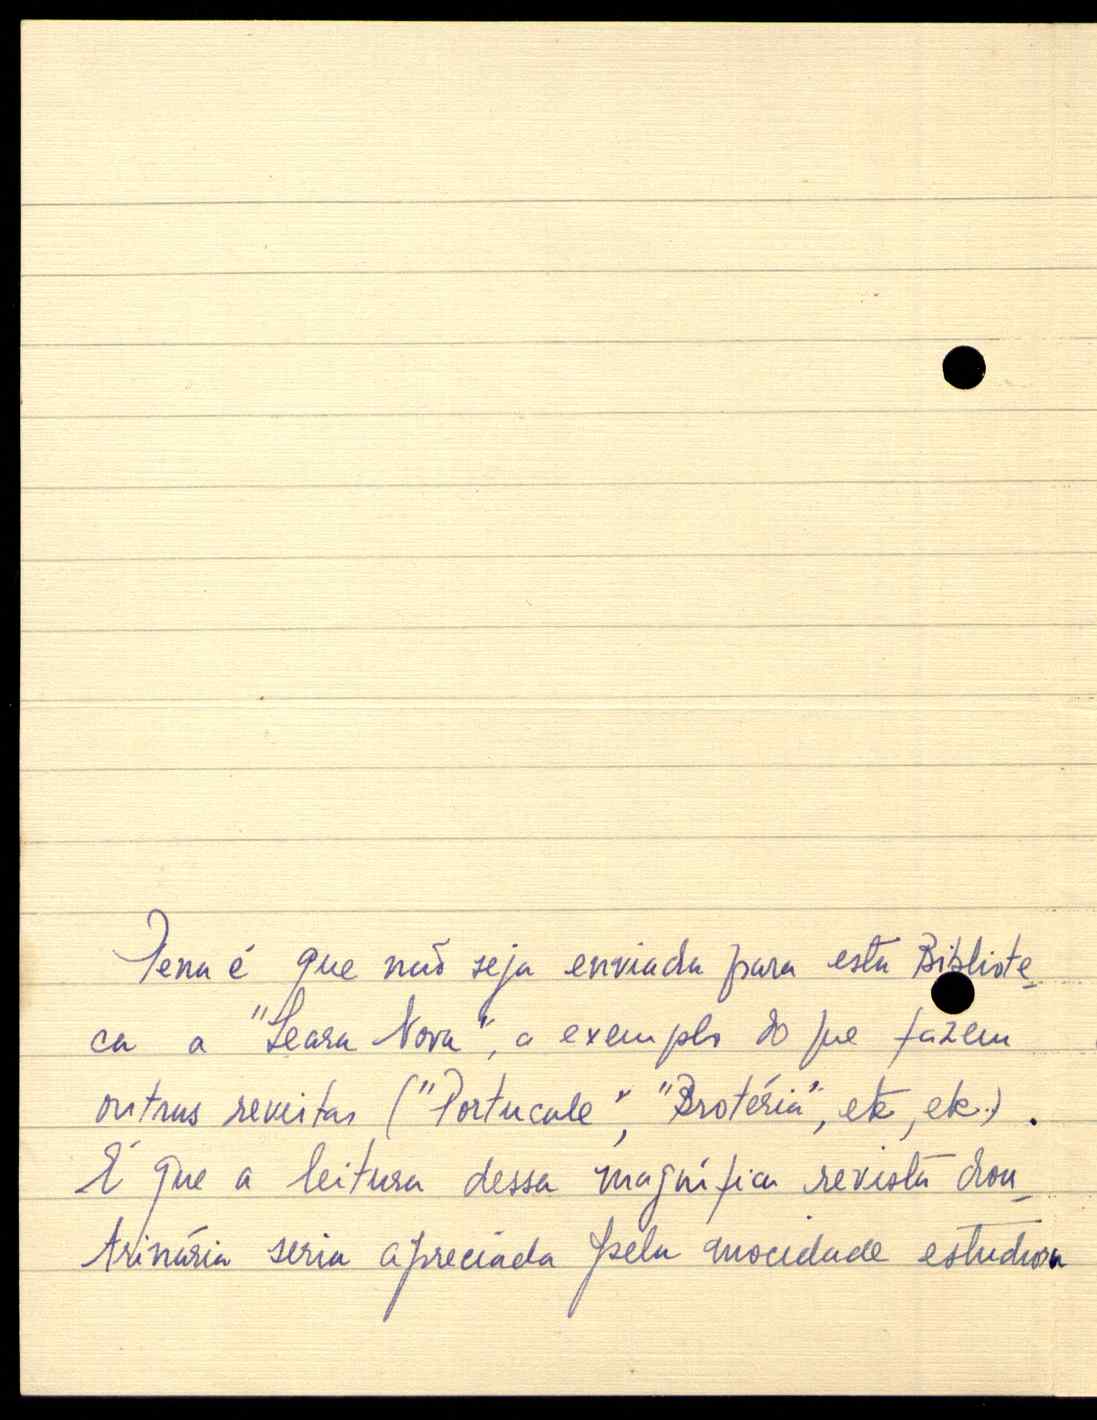 Pena é que não seja enviada para esta Bibliote-
ca a "Seara Nova", a exemplo do que fazem
outras revistas ("Portucale", "Brotéria", etc, etc.).
É que a leitura dessa magnífica revista dou-
trinária seria apreciada pela mocidade estudiosa